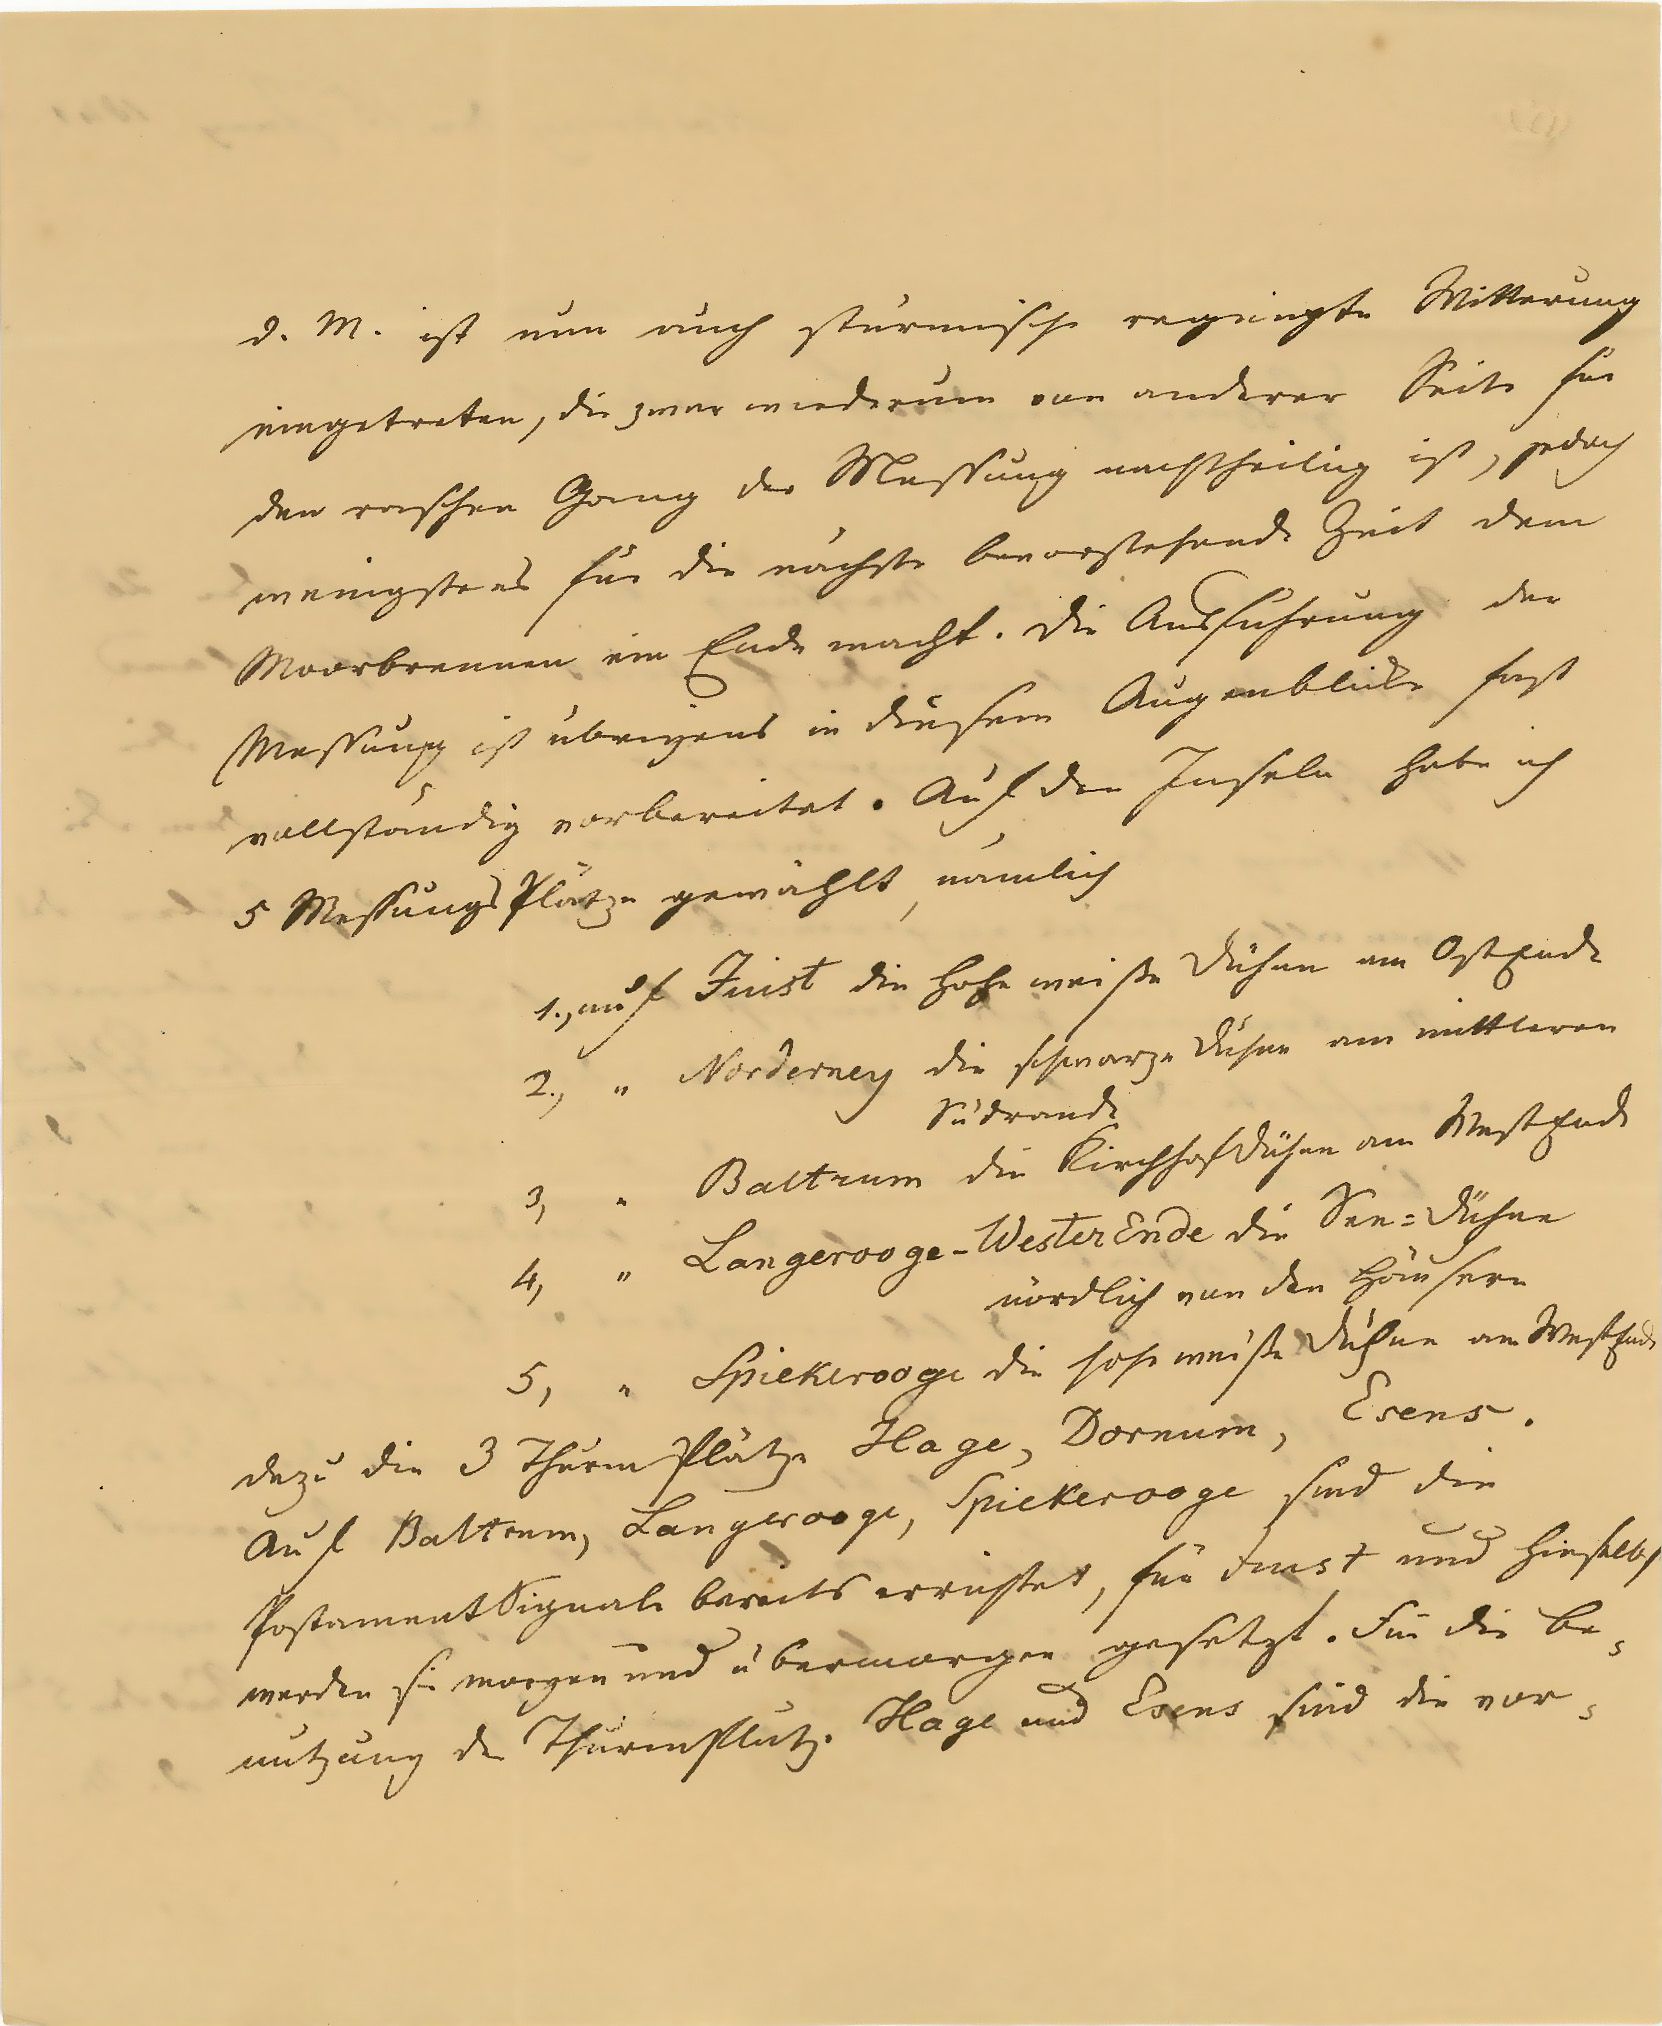 d. M. ist nun auch stürmische regnigte Witterung
eingetreten, die zwar wiederum von anderer Seite für
den raschen Gang der Messung nachtheilig ist, jedoch
wenigstens für die nächste bevorstehende Zeit dem
Moorbrennen ein Ende macht. Die Ausführung der
Messung ist übrigens in diesem Augenblicke fast
vollständig vorbereitet. Auf den Inseln habe ich
5 MessungsPlätze gewählt, nämlich
1., auf Juist die hohe weiße Dühne am OstEnde
2., " Norderney die schwarze Dühne am mittleren
Südrande
3, " Baltrum die KirchhofDühne am WestEnde
4, " Langerooge-WesterEnde die See=Dühne
nördlich von den Häusern
5, " Spiekerooge die hohe weiße Dühne am WestEnde
dazu die 3 ThurmPlätze Hage, Dornum, Esens.
Auf Baltrum, Langerooge, Spiekerooge sind die
PostamentSignale bereits errichtet, für Juist und hieselbst
werden sie morgen und übermorgen gesetzt. Für die Be=
nutzung der ThurmPlätze Hage und Esens sind die vor=